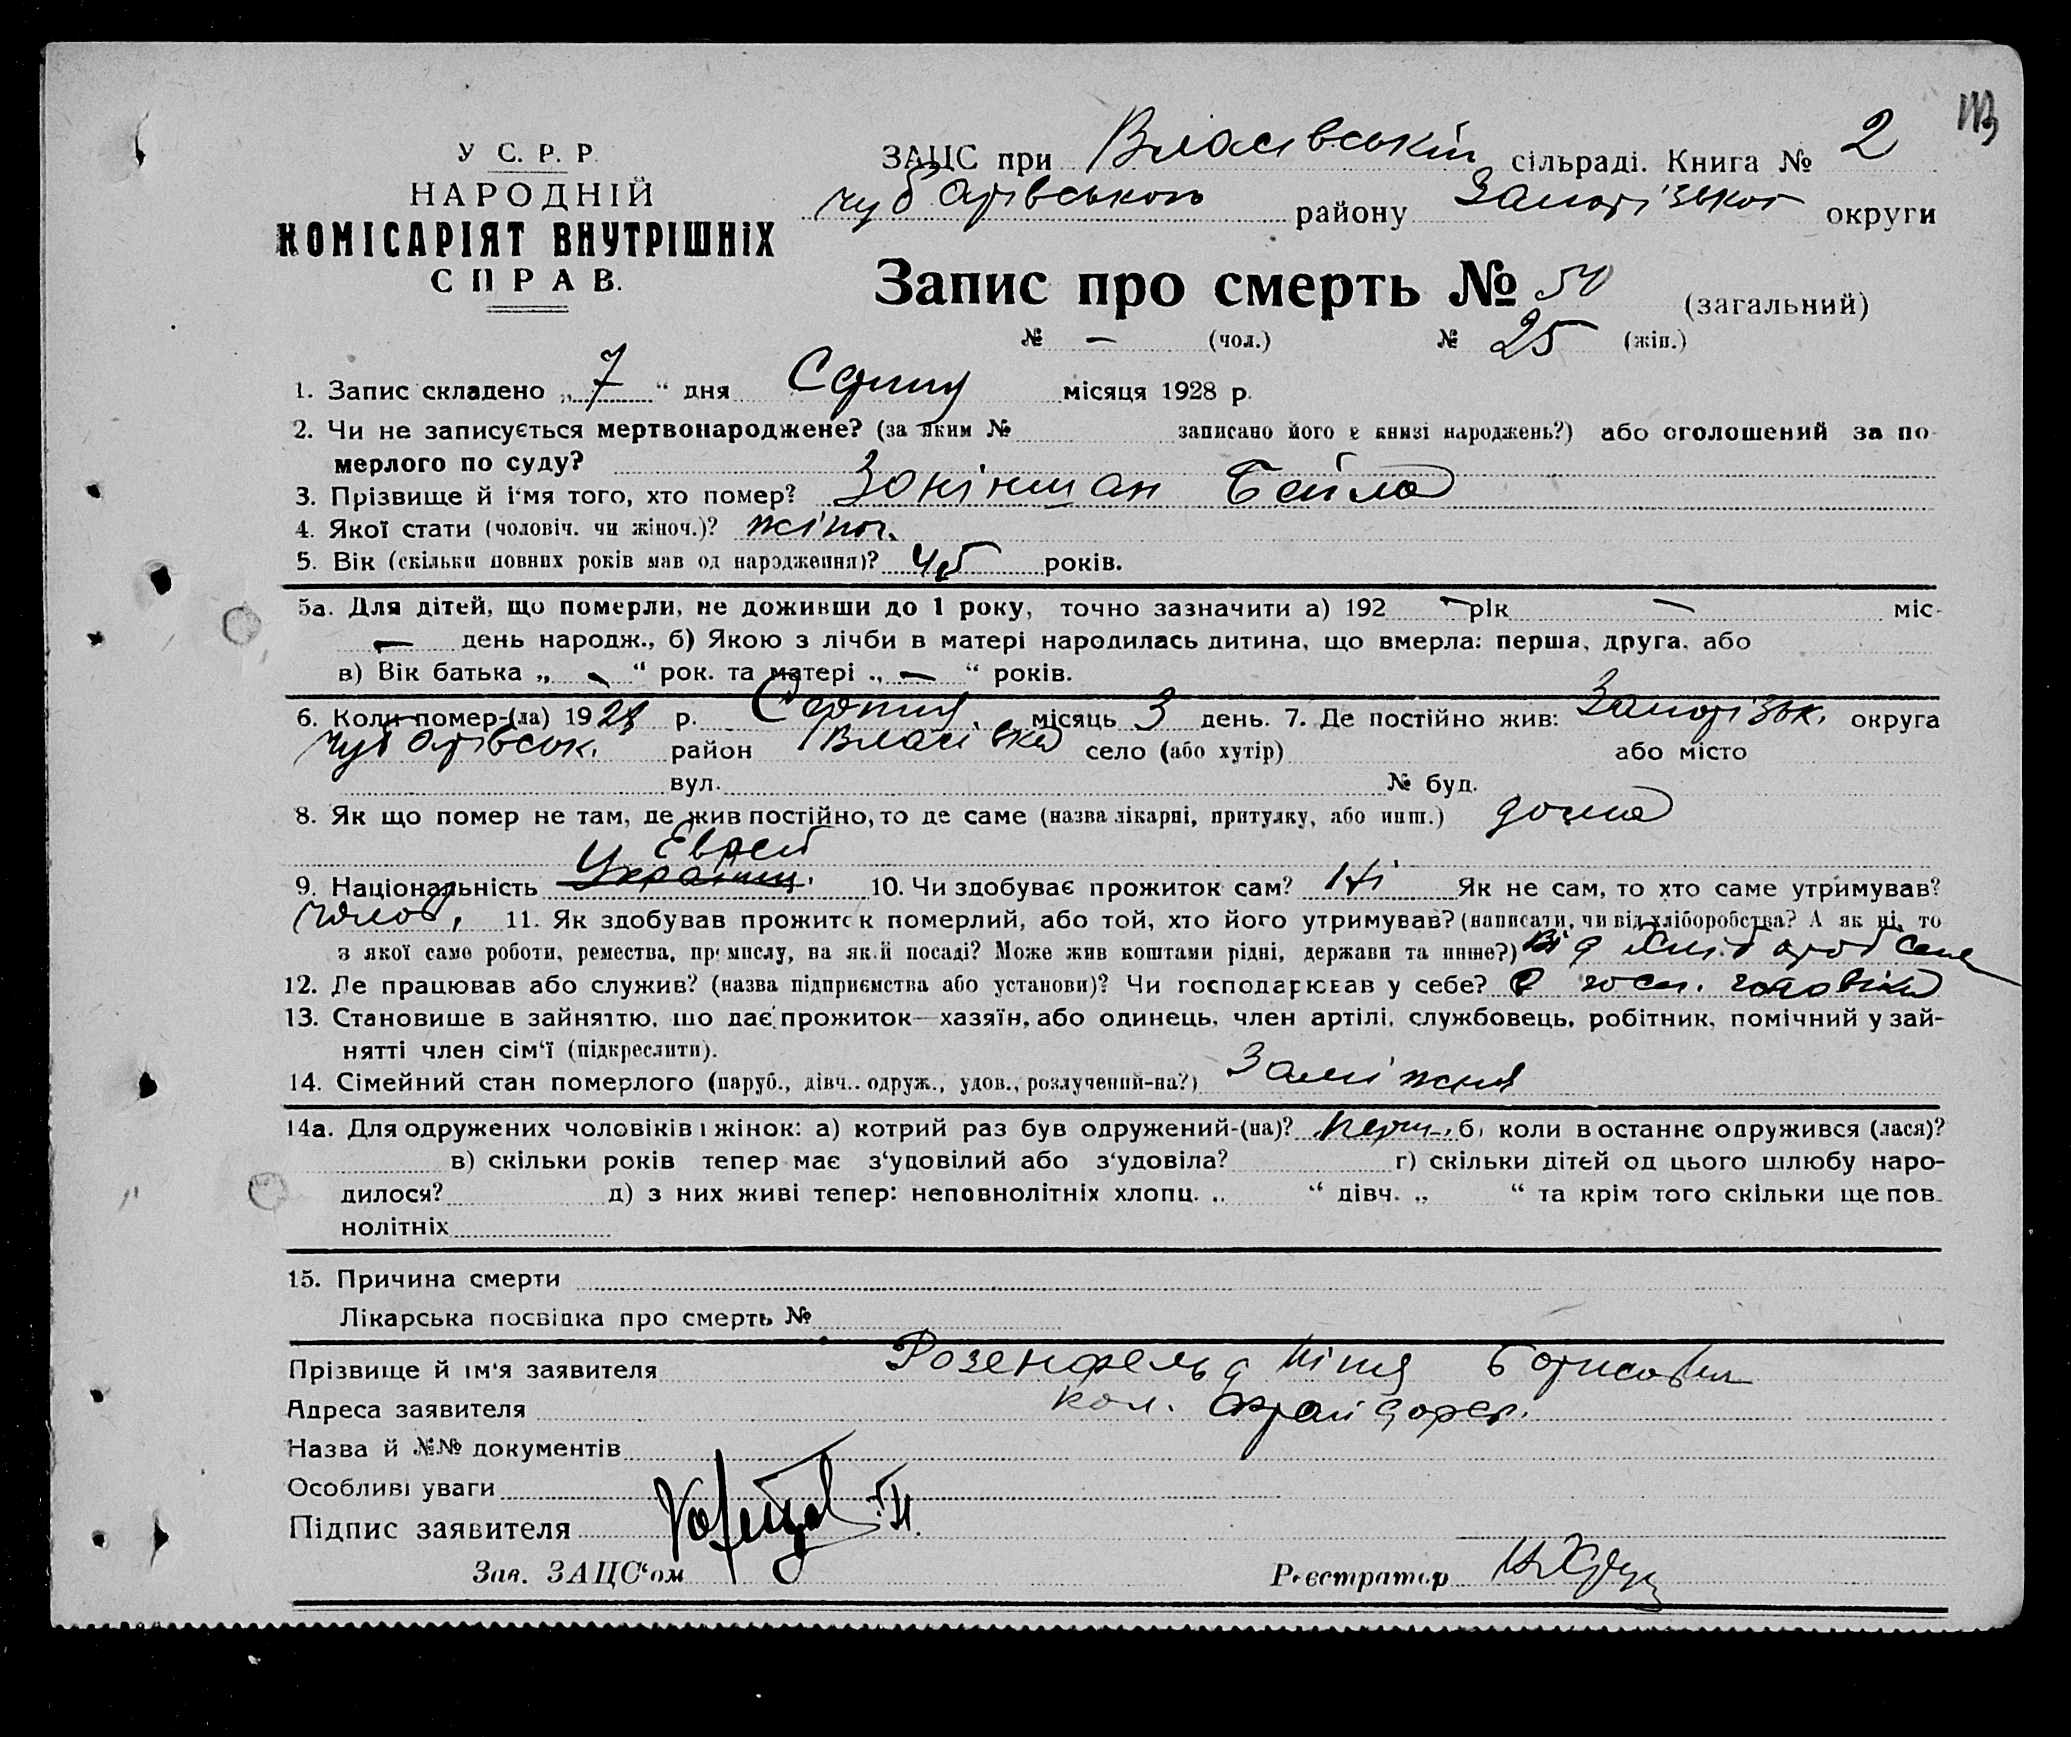 113
У С. Р. Р.
НАРОДНІЙ
КОМІСАРІЯТ ВНУТРІШНІХ
СПРАВ.
ЗАЦС при Власівській сільраді. Книга № 2
Чубарівського району Запорізької округи
Запис про смерть № 50 (загальний)
№ — (чол.) № 25 (жін.)
1. Запис складено „ 7 “ дня Серпня місяця 1928 р.
2. Чи не записується мертвонароджене? (за яким № записано його в книзі народжень?) або оголошений за по-
мерлого по суду?
3. Прізвище й ім'я того, хто помер? Зонінман Бейла
4. Якої стати (чоловіч. чи жіноч.)? жіноч.
5. Вік (скільки повних років мав од народження)? 45 років.
5а. Для дітей, що померли, не доживши до 1 року, точно зазначити а) 192 — рік — міс-
— день народж., б) Якою з лічби в матері народилась дитина, що вмерла: перша, друга, або
в) Вік батька „ — “ рок. та матері „ — “ років.
6. Коли помер-(ла) 1928 р. Серпня місяць 3 день. 7. Де постійно жив: Запорізьк. округа
Чубарівськ. район Власівка село (або хутір) або місто
вул. № буд.
8. Як що помер не там, де жив постійно, то де саме (назва лікарні, притулку, або инш.) дома
Єврей
9. Національність Українц. 10. Чи здобуває прожиток сам? Ні Як не сам, то хто саме утримував?
чолов. 11. Як здобував прожиток померлий, або той, хто його утримував? (написати, чи від хліборобства? А як ні, то
з якої саме роботи, ремества, промислу, на якій посаді? Може жив коштами рідні, держави та инше?) Від хліборобства
12. Де працював або служив? (назва підприємства або установи)? Чи господарював у себе? В госп. чоловіка
13. Становище в зайняттю, що дає прожиток—хазяїн, або одинець, член артілі, службовець, робітник, помічний у зай-
нятті член сім'ї (підкреслити).
14. Сімейний стан померлого (паруб., дівч.. одруж., удов., розлучений-на?) Заміжня
14а. Для одружених чоловіків і жінок: а) котрий раз був одружений-(на)? перш. б) коли в останнє одружився (лася)?
в) скільки років тепер має з'удовілий або з'удовіла? г) скільки дітей од цього шлюбу наро-
дилося? д) з них живі тепер: неповнолітніх хлопц. „ “ дівч. „ “ та крім того скільки ще пов-
нолітніх
15. Причина смерти
Лікарська посвідка про смерть №
Прізвище й ім'я заявителя Розенфельд Борисович
Адреса заявителя кол. Фрайдорф.
Назва й №№ документів
Особливі уваги
Підпис заявителя
Зав. ЗАЦС'ом Реєстратор